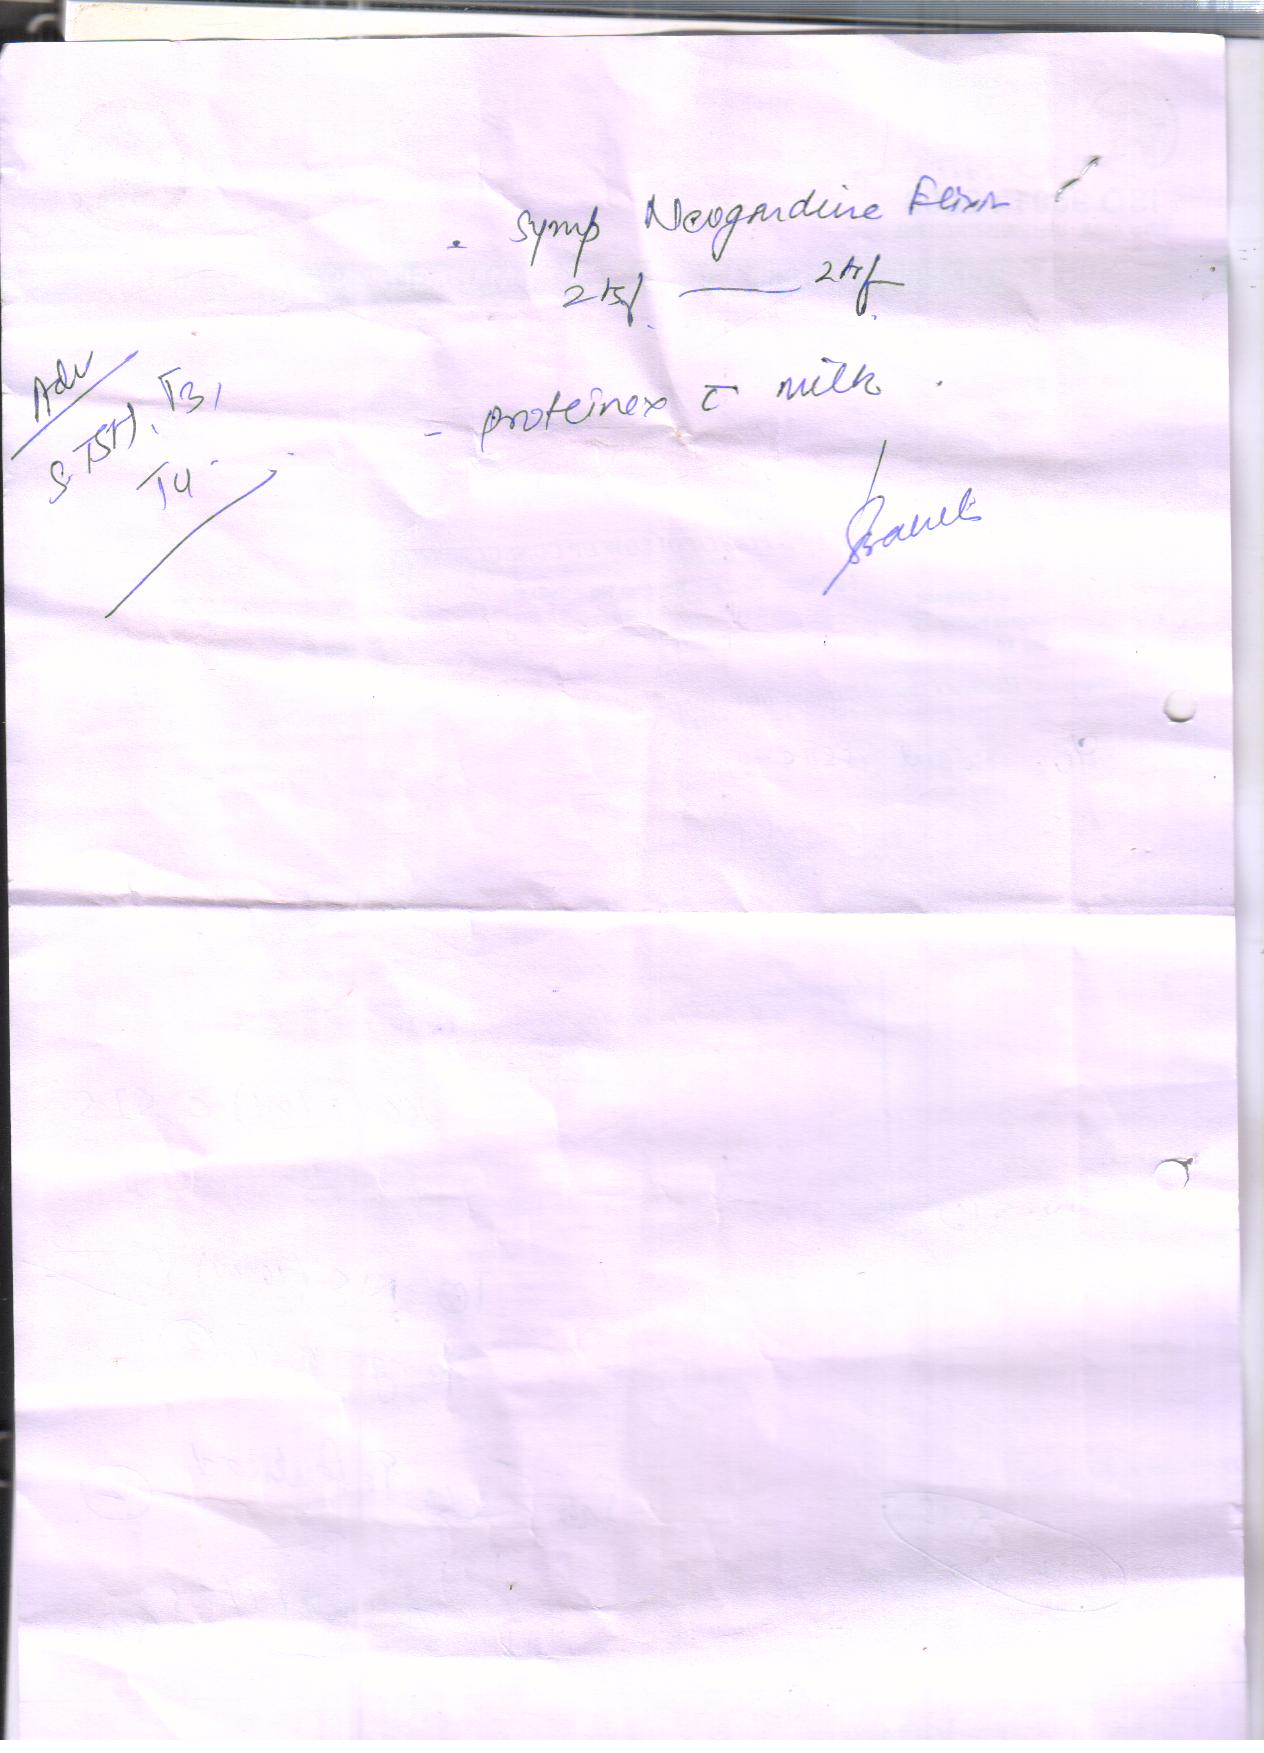 . Symp Neogardine Elixir
2tsf —— 2tsf
- proteinex c̄ milk .
Adv
S. TSH, T3,
T4